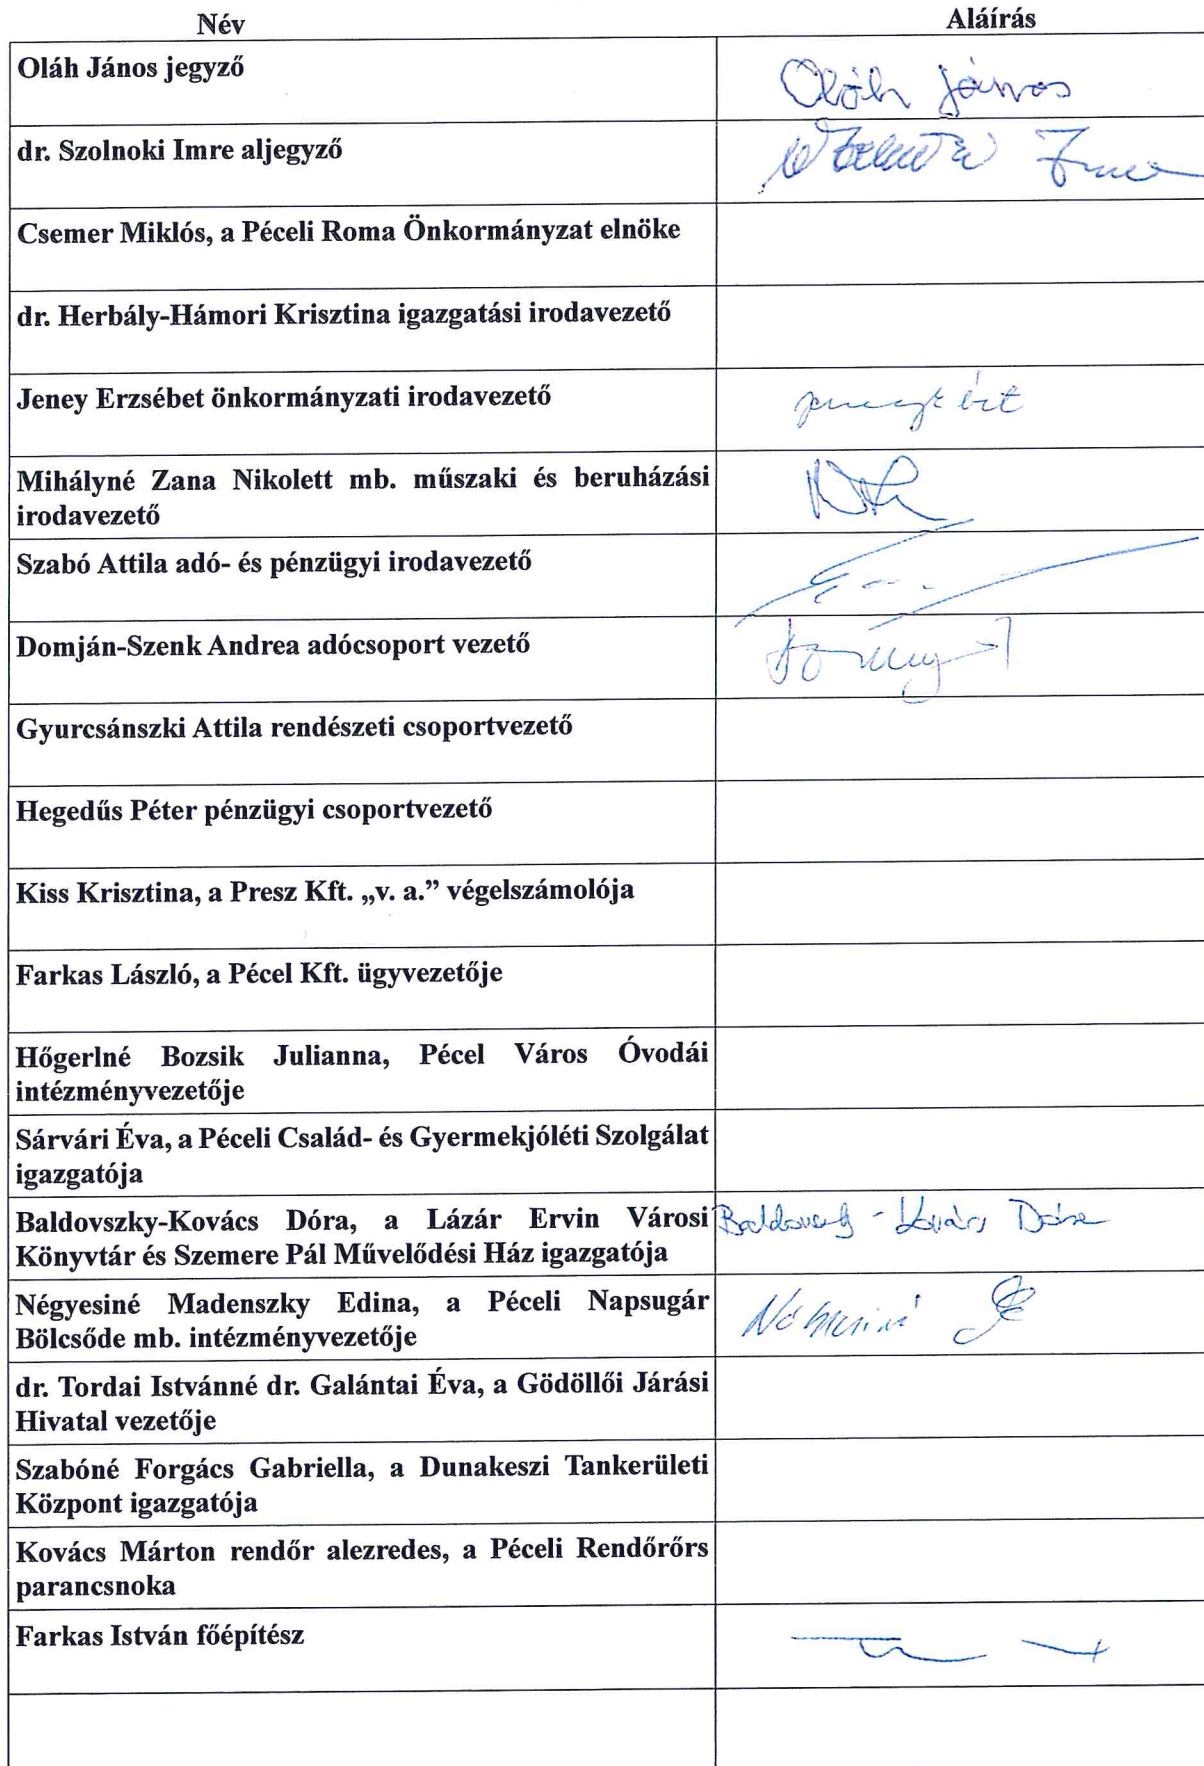 Név Aláírás
Oláh János jegyző Oláh János
dr. Szolnoki Imre aljegyző Imre
Csemer Miklós, a Péceli Roma Önkormányzat elnöke
dr. Herbály-Hámori Krisztina igazgatási irodavezető
Jeney Erzsébet önkormányzati irodavezető
Mihályné Zana Nikolett mb. műszaki és beruházási
irodavezető
Szabó Attila adó- és pénzügyi irodavezető
Domján-Szenk Andrea adócsoport vezető
Gyurcsánszki Attila rendészeti csoportvezető
Hegedűs Péter pénzügyi csoportvezető
Kiss Krisztina, a Presz Kft. „v. a.” végelszámolója
Farkas László, a Pécel Kft. ügyvezetője
Hőgerlné Bozsik Julianna, Pécel Város Óvodái
intézményvezetője
Sárvári Éva, a Péceli Család- és Gyermekjóléti Szolgálat
igazgatója
Baldovszky-Kovács Dóra, a Lázár Ervin Városi Baldovszky-Kovács Dóra
Könyvtár és Szemere Pál Művelődési Ház igazgatója
Négyesiné Madenszky Edina, a Péceli Napsugár
Bölcsőde mb. intézményvezetője
dr. Tordai Istvánné dr. Galántai Éva, a Gödöllői Járási
Hivatal vezetője
Szabóné Forgács Gabriella, a Dunakeszi Tankerületi
Központ igazgatója
Kovács Márton rendőr alezredes, a Péceli Rendőrőrs
parancsnoka
Farkas István főépítész